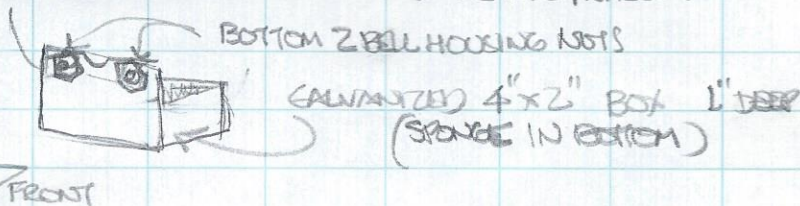 BOTTOM 2 BELL HOUSING NUTS
GALVANIZED 4"x2" BOX 1" DEEP
(SPONGE IN BOTTOM)
FRONT